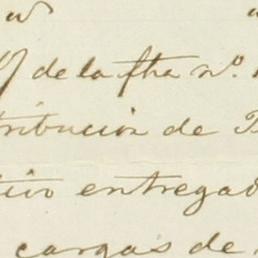 de la fha nº.
tribucion de
tivo entregad
cargas de